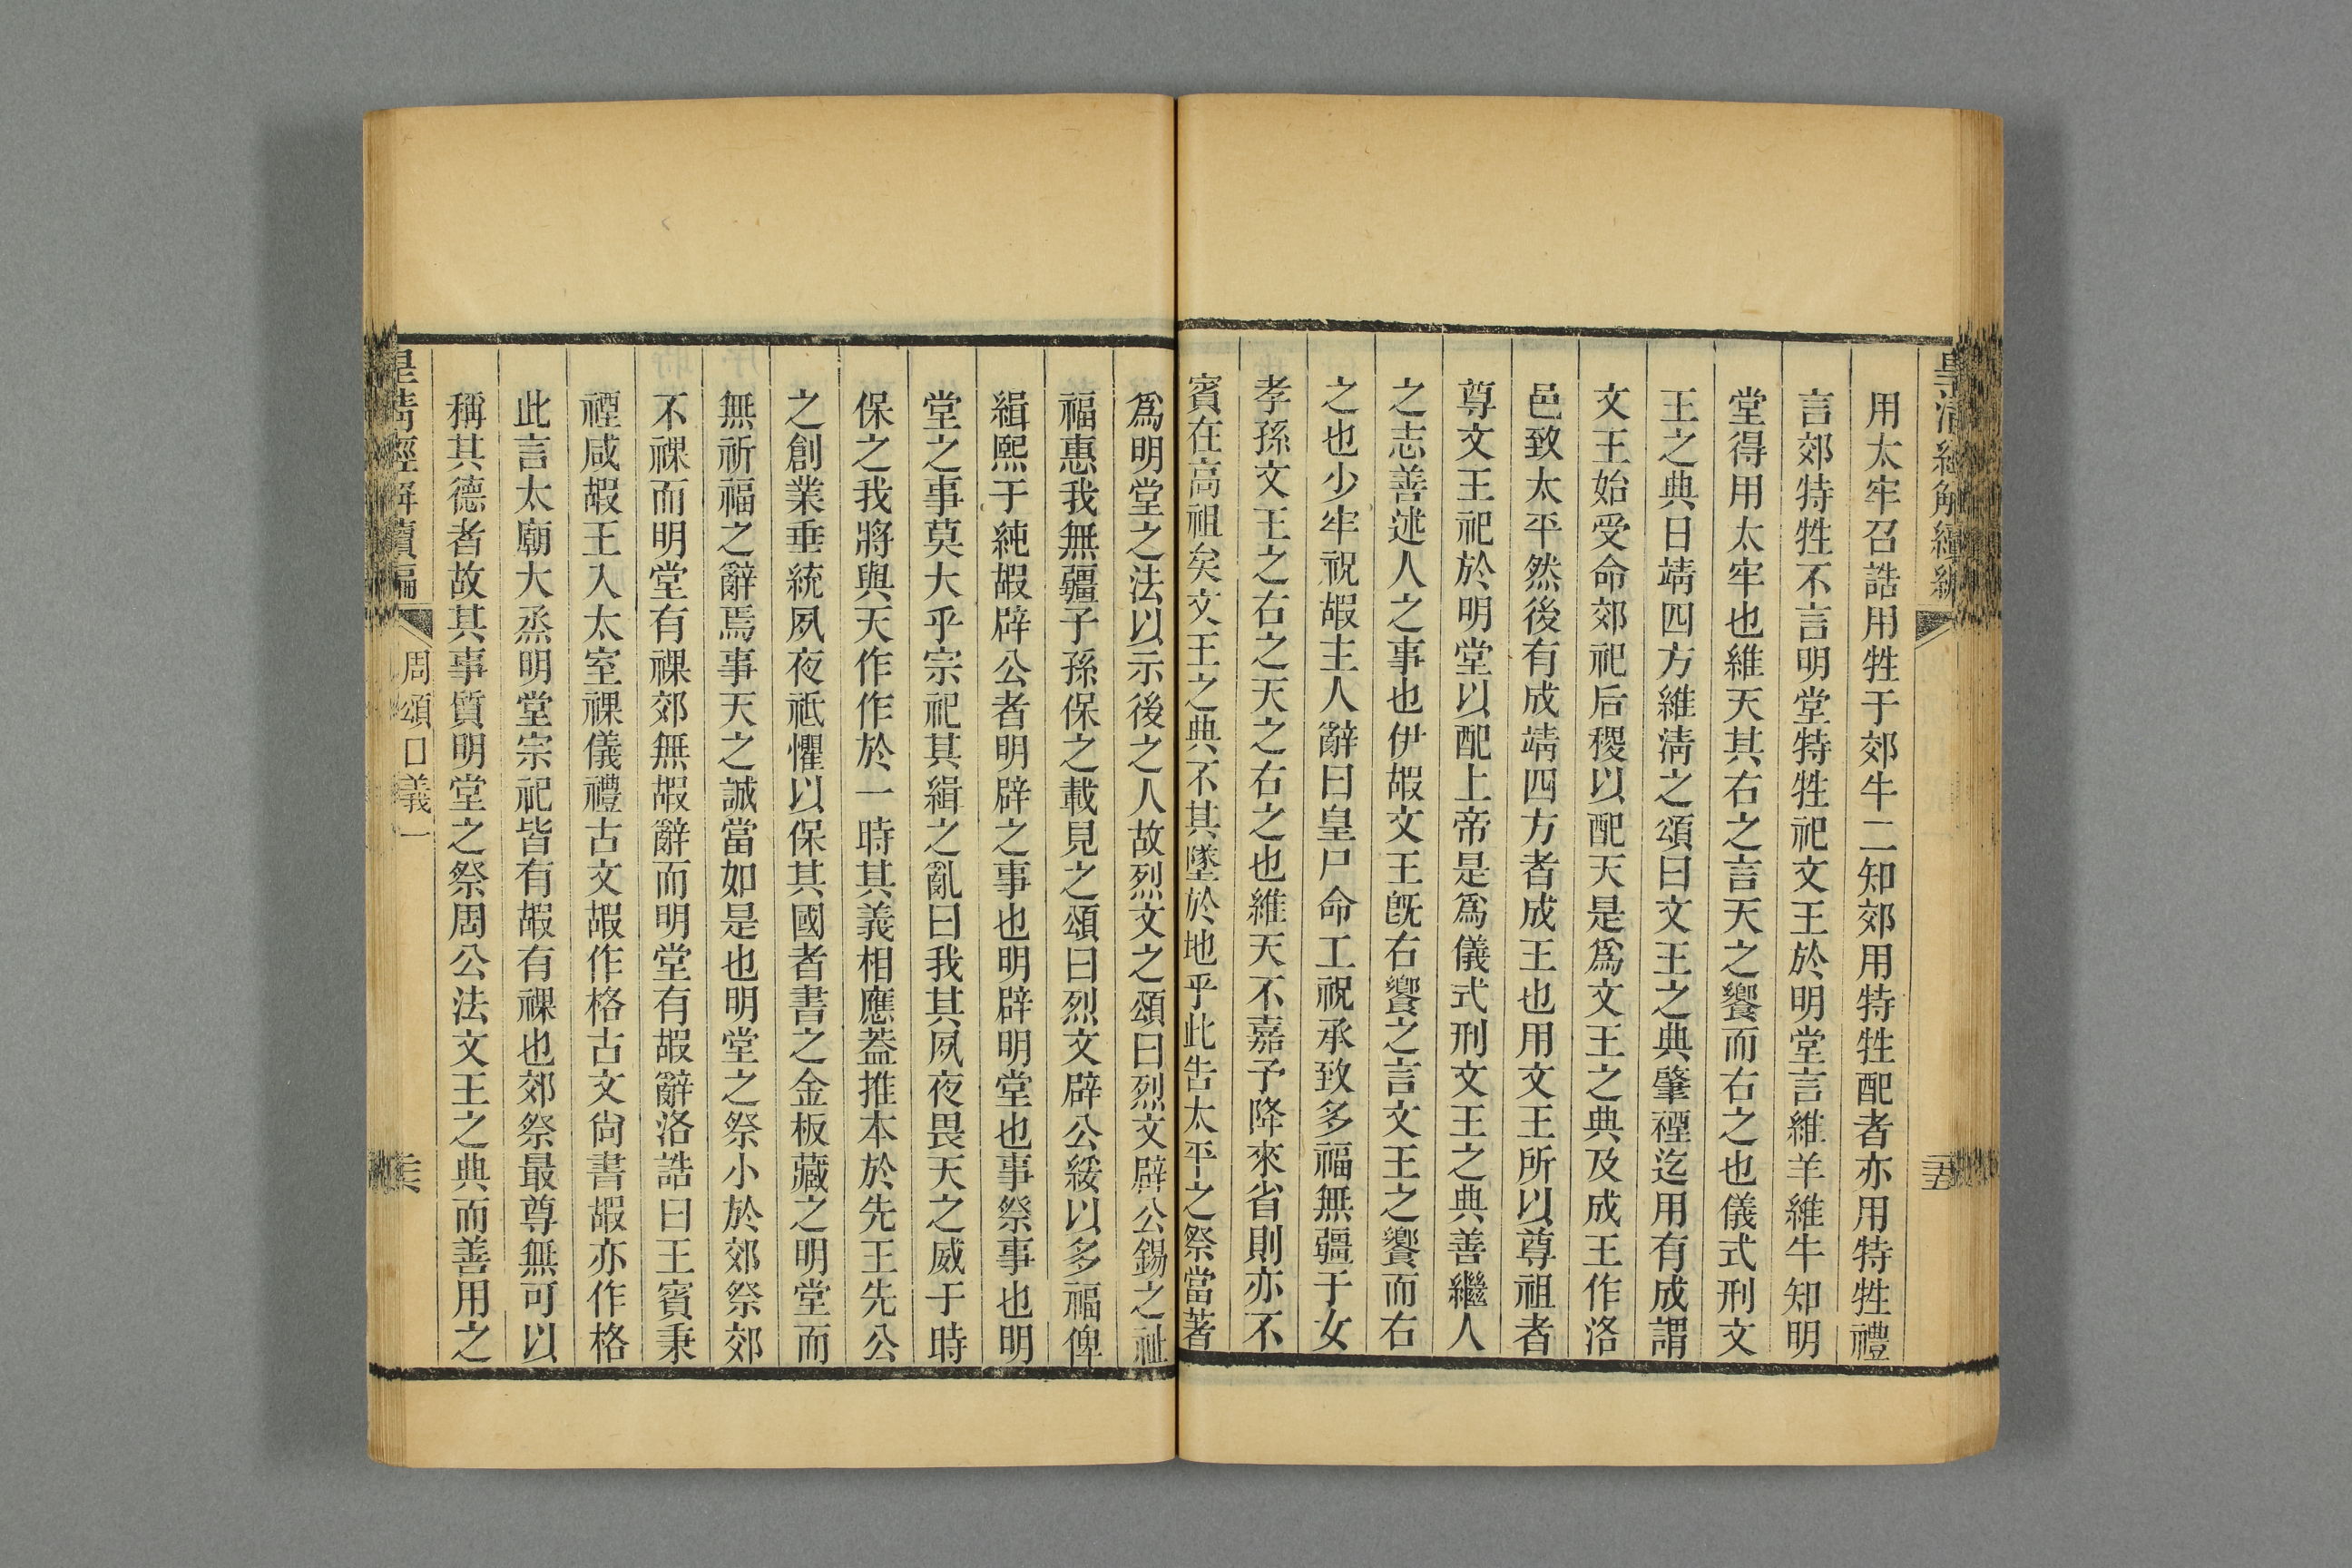 皇清經解續編
用太牢召誥用牲于郊牛二知郊用特牲配者亦用特牲禮
言郊特牲不言明堂特牲祀文王於明堂言維羊維牛知明
堂得用太牢也維天其右之言天之饗而右之也儀式刑文
王之典日靖四方維淸之頌曰文王之典肇禋迄用有成謂
文王始受命郊祀后稷以配天是爲文王之典及成王作洛
邑致太平然後有成靖四方者成王也用文王所以尊祖者
尊文王祀於明堂以配上帝是爲儀式刑文王之典善繼人
之志善述人之事也伊嘏文王旣右饗之言文王之饗而右
之也少牢祝嘏主人辭曰皇尸命工祝承致多福無疆于女
孝孫文王之右之天之右之也維天不嘉予降來省則亦不
賓在高祖矣文王之典不其墜於地乎此告太平之祭當著
爲明堂之法以示後之人故烈文之頌曰烈文辟公錫之祉
福惠我無疆子孫保之載見之頌曰烈文辟公綏以多福俾
緝熙于純嘏辟公者明辟之事也明辟明堂也事祭事也明
堂之事莫大乎宗祀其緝之亂曰我其夙夜畏天之威于時
保之我將與天作作於一時其義相應葢推本於先王先公
之創業垂統夙夜祗懼以保其國者書之金板藏之明堂而
無祈福之辭焉事天之誠當如是也明堂之祭小於郊祭郊
不祼而明堂有祼郊無嘏辭而明堂有嘏辭洛誥曰王賓秉
禋咸嘏王入太室祼儀禮古文嘏作格古文尙書嘏亦作格
此言太廟大烝明堂宗祀皆有嘏有祼也郊祭最尊無可以
稱其德者故其事質明堂之祭周公法文王之典而善用之
皇清經解續編
周頌口義一